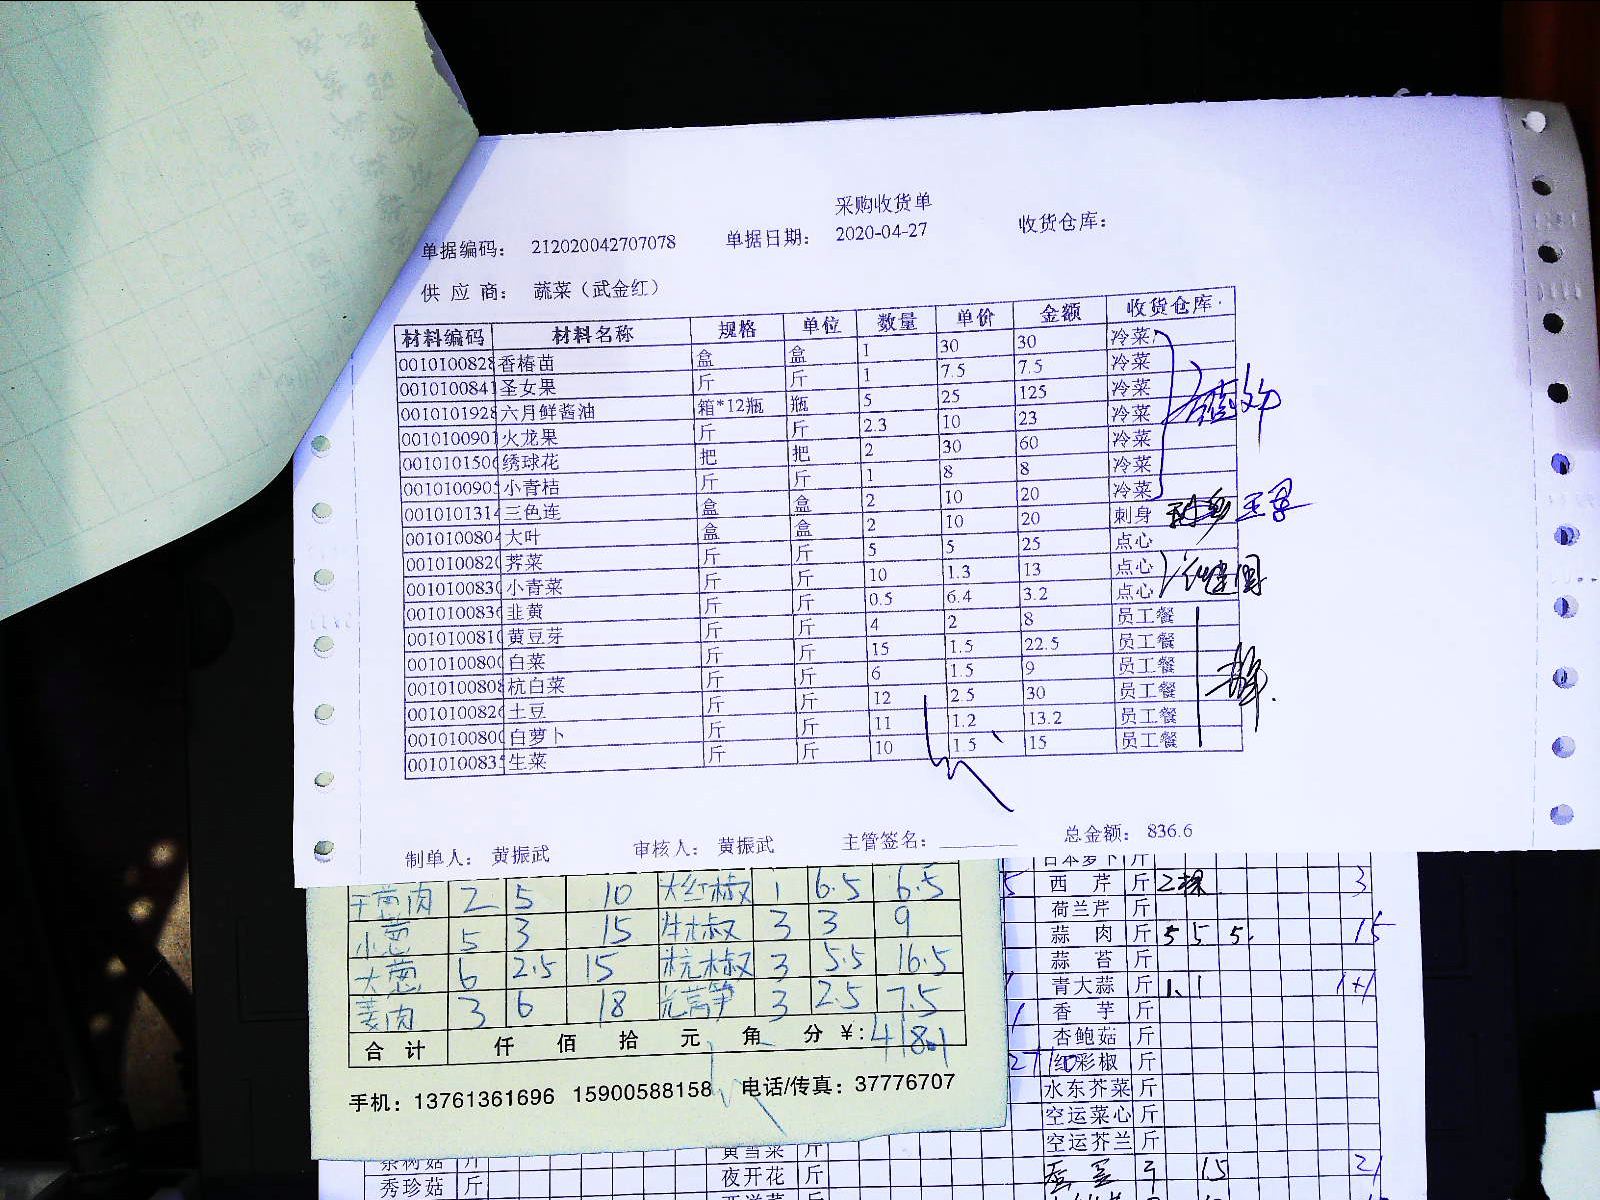 采购收货单
单据编码： 212020042707078 单据日期： 2020-04-27 收货仓库：
供 应 商： 蔬菜（武金红）
材料编码 材料名称 规格 单位 数量 单价 金额 收货仓库
0010100828 香椿苗 盒 盒 1 30 30 冷菜
0010100841 圣女果 斤 斤 1 7.5 7.5 冷菜
0010101928 六月鲜酱油 箱*12瓶 瓶 5 25 125 冷菜
0010100901 火龙果 斤 斤 2.3 10 23 冷菜
0010101506 绣球花 把 把 2 30 60 冷菜
0010100905 小青桔 斤 斤 1 8 8 冷菜
0010101314 三色连 盒 盒 2 10 20 冷菜
0010100804 大叶 盒 盒 2 10 20 刺身
001010082 荠菜 斤 斤 5 5 25 点心
001010083 小青菜 斤 斤 10 1.3 13 点心
0010100836 韭黄 斤 斤 0.5 6.4 3.2 点心
001010081 黄豆芽 斤 斤 4 2 8 员工餐
001010080 白菜 斤 斤 15 1.5 22.5 员工餐
0010100808 杭白菜 斤 斤 6 1.5 9 员工餐
0010100826 土豆 斤 斤 12 2.5 30 员工餐
001010080 白萝卜 斤 斤 11 1.2 13.2 员工餐
001010083 生菜 斤 斤 10 1.5 15 员工餐
制单人： 黄振武 审核人： 黄振武 主管签名： 总金额： 836.6
干葱肉 2 5 10 大红椒 1 6.5 6.5
小葱 5 3 15 牛椒 3 3 9
大葱 6 2.5 15 杭椒 3 5.5 16.5
姜肉 3 6 18 光莴笋 3 2.5 7.5
合 计 仟 佰 拾 元 角 分 ¥: 418.1
手机：13761361696 15900588158 电话/传真：37776707
日本萝卜 斤
西 芹 斤 2棵 3
荷兰芹 斤
蒜 肉 斤 5 5 5 15
蒜 苔 斤
青大蒜 斤 1 1 1+1
香 芋 斤
杏鲍菇 斤
红彩椒 斤
水东芥菜 斤
空运菜心 斤
空运芥兰 斤
15 21
黄当菜 斤
茶树菇 斤
夜开花 斤
秀珍菇 斤